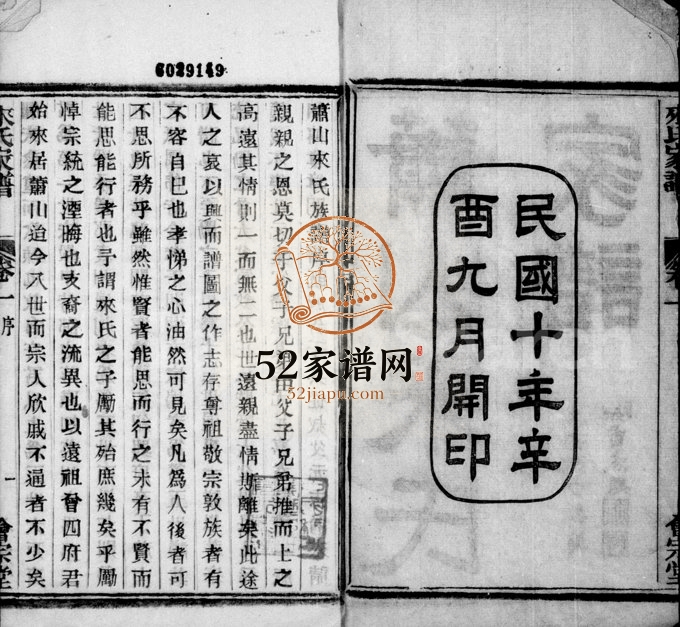 6029149
民國十年辛
酉九月開印
來氏家譜
會宗堂
蕭山來氏族譜序
親親之恩莫切于父子兄弟由父子兄弟推而上之
高遠其情則一而無二也世遠親盡情斯離矣此途
人之哀以興而譜圖之作志存尊祖敬宗敦族者有
不容自已也孝悌之心油然可見矣凡為人後者可
不思所務乎雖然惟賢者能思而行之未有不賢而
能思能行者也予謂來氏之子勵其殆庶幾矣乎勵
悼宗統之湮晦也支裔之流異也以遠祖晉四府君
始來居蕭山迨今八世而宗人欣戚不逼者不少矣
來氏家譜
卷一
序
一
會宗堂
52家谱网
52jiapu.com